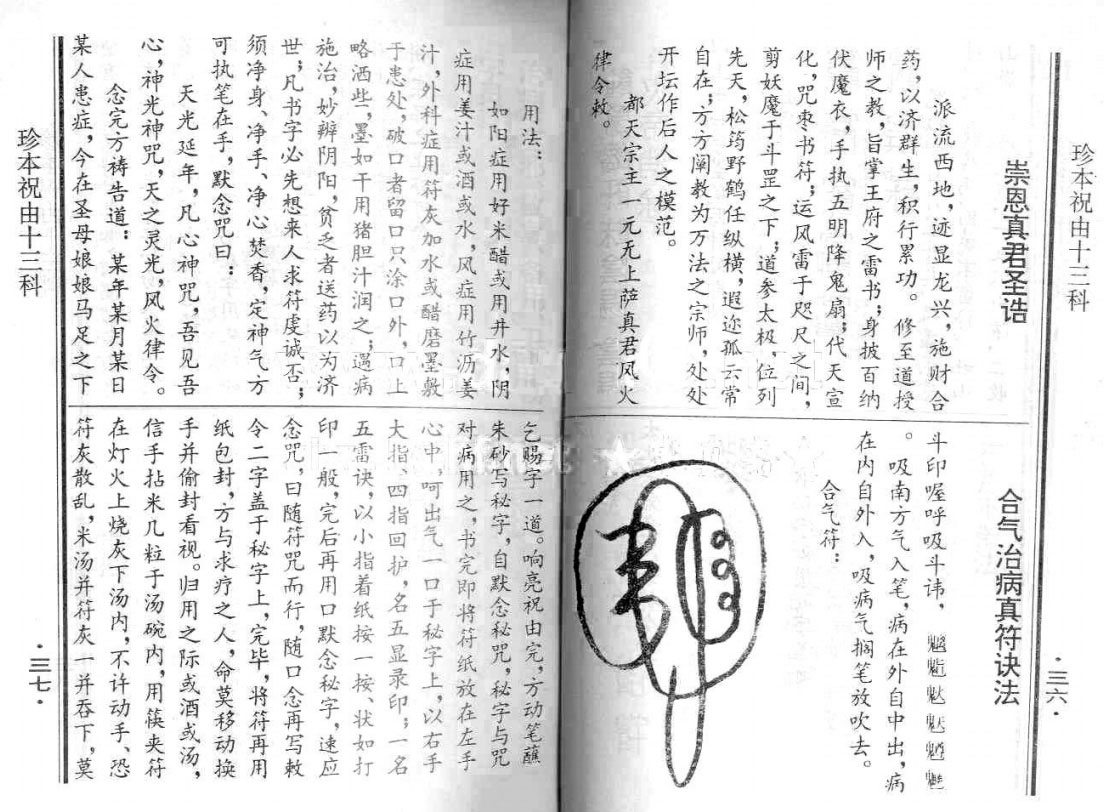 珍本祝由十三科
·三六·
崇恩真君圣诰
派流西地，迹显龙兴，施财合
药，以济群生，积行累功。修至道授
师之教，旨掌王府之雷书；身披百纳
伏魔衣，手执五明降鬼扇；代天宣
化，咒枣书符；运风雷于咫尺之间，
剪妖魔于斗罡之下；道参太极，位列
先天，松筠野鹤任纵横，遐迩孤云常
自在；方方阐教为万法之宗师，处处
开坛作后人之模范。
都天宗主一元无上萨真君风火
律令敕。
合气治病真符诀法
斗印喔呼吸斗讳，
。吸南方气入笔，病在外自中出，病
在内自外入，吸病气搁笔放吹去。
合气符：
用法：
如阳症用好米醋或用井水，阴
症用姜汁或酒或水，风症用竹沥姜
汁，外科症用符灰加水或醋磨墨敷
于患处，破口者留口只涂口外，口上
略洒些，墨如干用猪胆汁润之；遇病
施治，妙辨阴阳，贫乏者送药以为济
世；凡书字必先想来人求符虔诚否；
须净身、净手、净心焚香，定神气方
可执笔在手，默念咒曰：
天光延年，凡心神咒，吾见吾
心，神光神咒，天之灵光，风火律令。
念完方祷告道：某年某月某日
某人患症，今在圣母娘娘马足之下
乞赐字一道。响亮祝由完，方动笔蘸
朱砂写秘字，自默念秘咒，秘字与咒
对病用之，书完即将符纸放在左手
心中，呵出气一口于秘字上，以右手
大指、四指回护，名五显录印；一名
五雷诀，以小指着纸按一按、状如打
印一般，完后再用口默念秘字，速应
念咒，曰随符咒而行，随口念再写敕
令二字盖于秘字上，完毕，将符再用
纸包封，方与求疗之人，命莫移动换
手并偷封看视。归用之际或酒或汤，
信手拈米几粒于汤碗内，用筷夹符
在灯火上烧灰下汤内，不许动手、恐
符灰散乱，米汤并符灰一并吞下，莫
珍本祝由十三科
·三七·